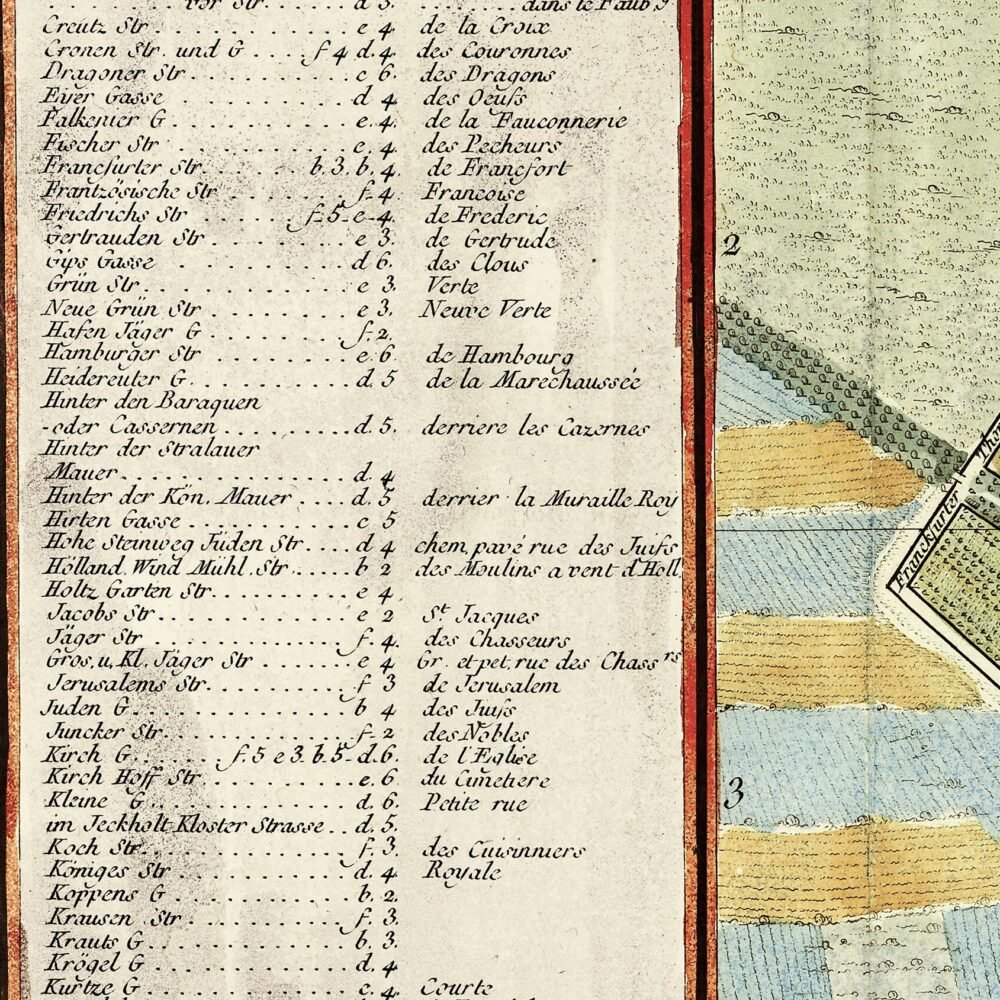 vor Str. d 3. dans le Faub g
Creutz Str. e 4 de la Croix
Cronen Str. und G f 4 d. 4 des Couronnes
Dragoner Str. c 6. des Dragons
Eyer Gasse d 4 des Oeufs
Falkenier G. e. 4. de la Fauconnerie
Fischer Str e. 4. des Pecheurs
Francfurter Str. b. 3. b. 4 de Francfort
Frantzösische Str f. 4 Francoise
Friedrichs Str f. 5. e. 4. de Frederic
Gertrauden Str. e 3. de Gertrude
Gips Gasse d 6. des Clous
Grün Str. e 3. Verte
Neue Grün Str e 3. Neuve Verte
Hafen Jäger G f. 2.
Hamburger Str e 6 de Hambourg
Heidereuter G. d. 5 de la Marechaussée
Hinter den Baraquen
-oder Cassernen d. 5. derriere les Cazernes
Hinter der Stralauer
Mauer d. 4
Hinter der Kön. Mauer d. 5 derrier la Muraille Roy
Hirten Gasse c 5
Hohe Steinweg Jüden Str. d 4 chem. pavé rue des Juifs
Holland. Wind Muhl. Str. b 2 des Moulins a vent d'Holl.
Holtz Garten Str. e 4
Jacobs Str e 2 St. Jacques
Jäger Str f. 4. des Chasseurs
Gros. u. Kl. Jäger Str e 4 Gr. et pet. rue des Chassrs
Jerusalems Str. f 3 de Jerusalem
Juden G. b 4 des Juifs
Juncker Str. f. 2 des Nobles
Kirch G. f. 5 e 3. b. 5. d. 6. de l'Eglise
Kirch Hoff Str. e. 6 du Cimetiere
Kleine G. d. 6. Petite rue
im Jeckholt Kloster Strasse d. 5.
Koch Str. f. 3. des Cuisinniers
Königes Str d. 4 Royale
Koppens G b. 2.
Krausen Str f. 3.
Krauts G. b. 3.
Krögel G d. 4
Kurtze G c. 4 Courte
2
Franckfurter
3